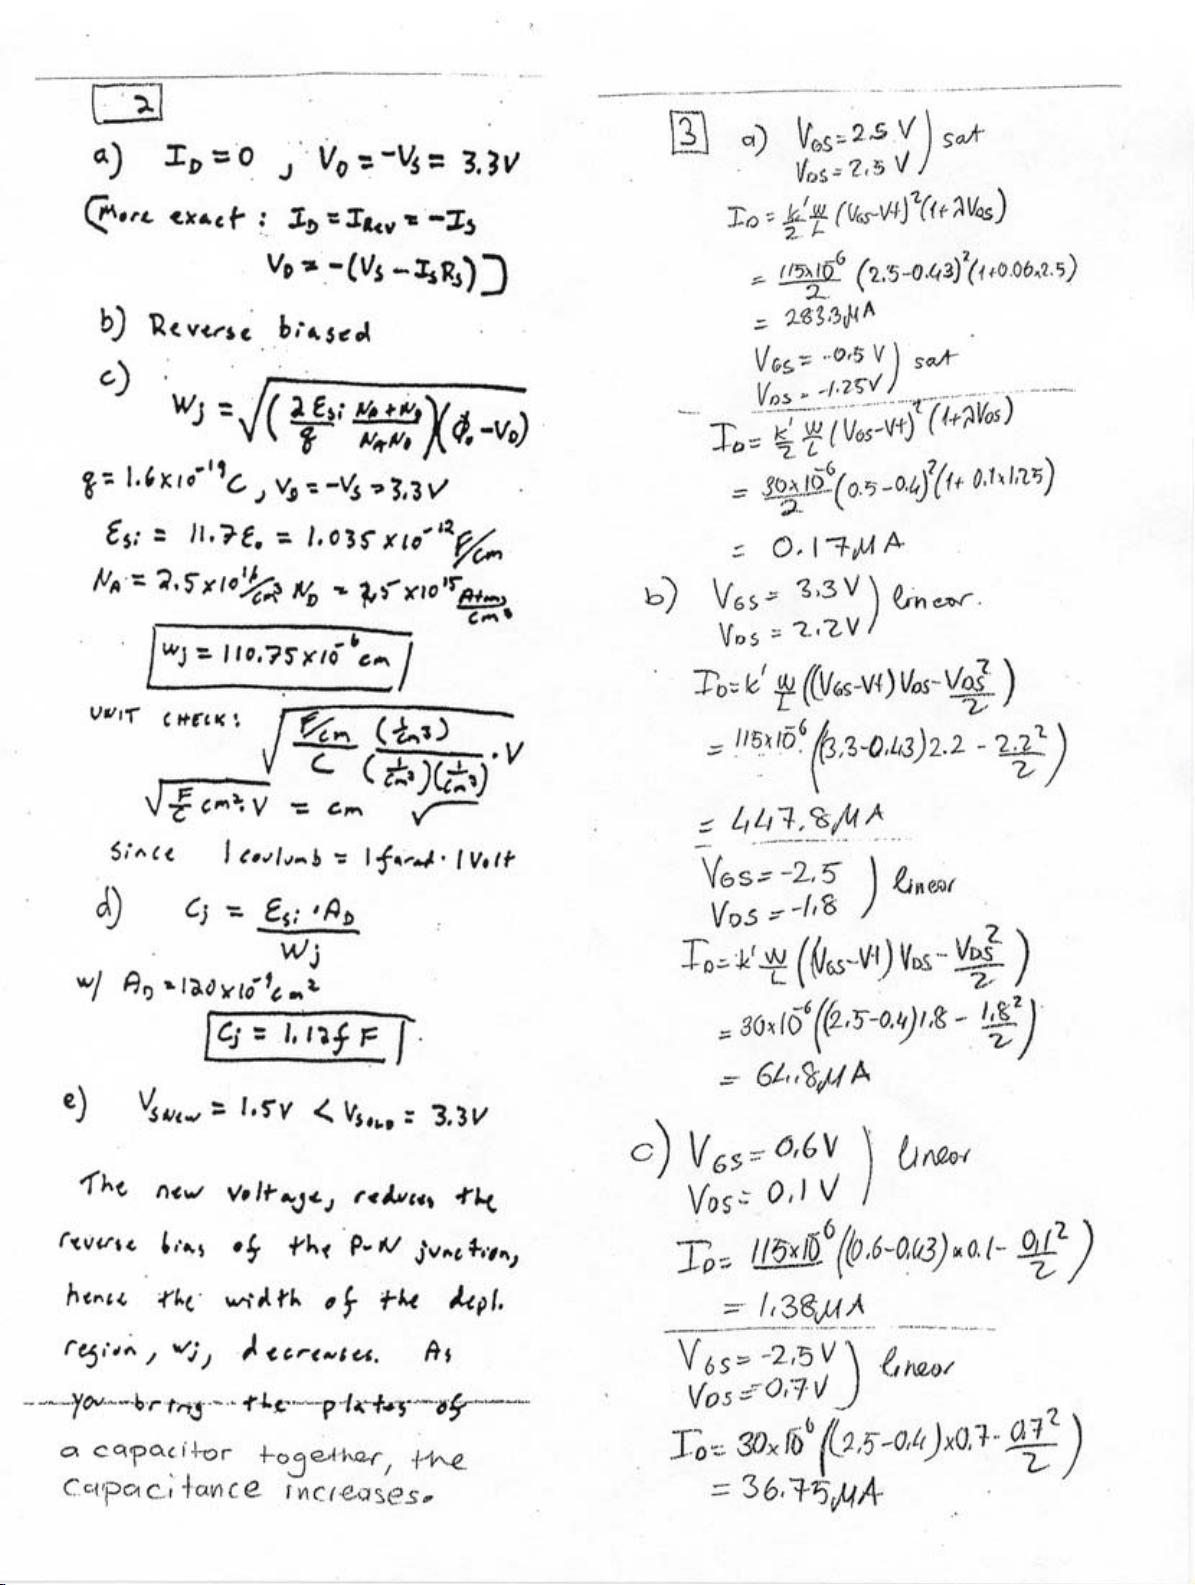 2
a) I_D = 0 , V_D = -V_S = 3.3V
(More exact : I_D = I_Rev = -I_S
V_D = -(V_S - I_S R_S)]
b) Reverse biased
c)
W_j = √((2 ε_si / q · (N_A + N_D) / (N_A N_D))(Φ_o - V_D))
q = 1.6x10^-19 C , V_D = -V_S = 3.3V
ε_si = 11.7 ε_o = 1.035 x10^-12 F/cm
N_A = 2.5x10^16 /cm^3 N_D = 2.5 x10^15 Atoms/cm^3
W_j = 110.75x10^-6 cm
UNIT CHECK: √((F/cm)/C · (1/cm^3)/((1/cm^3)(1/cm^3)) · V)
√(F/C cm^2 · V) = cm ✓
Since 1 coulumb = 1 farad · 1 Volt
d) C_j = ε_si · A_D / W_j
w/ A_D = 120x10^-9 cm^2
C_j = 1.12 f F
e) V_SNew = 1.5V < V_SOLD = 3.3V
The new voltage, reduces the
reverse bias of the P-N junction,
hence the width of the depl.
region, W_j, decreases. As
you bring the plates of
a capacitor together, the
capacitance increases.
3 a) V_GS = 2.5 V ) sat
V_DS = 2.5 V
I_D = k'/2 W/L (V_GS-Vt)^2 (1+λV_DS)
= 115x10^-6/2 (2.5-0.43)^2 (1+0.06x2.5)
= 283.3μA
V_GS = -0.5 V ) sat
V_DS = -1.25V
I_D = k'/2 W/L (V_GS-Vt)^2 (1+λV_DS)
= 30x10^-6/2 (0.5-0.4)^2 (1+ 0.1x1.25)
= 0.17μA
b) V_GS = 3.3 V ) linear.
V_DS = 2.2V
I_D = k' W/L ((V_GS-Vt) V_DS - V_DS^2/2)
= 115x10^-6 ((3.3-0.43)2.2 - 2.2^2/2)
= 447.8μA
V_GS = -2.5 ) linear
V_DS = -1.8
I_D = k' W/L ((V_GS-Vt) V_DS - V_DS^2/2)
= 30x10^-6 ((2.5-0.4)1.8 - 1.8^2/2)
= 64.8μA
c) V_GS = 0.6V ) linear
V_DS = 0.1 V
I_D = 115x10^-6 ((0.6-0.43)x0.1- 0.1^2/2)
= 1.38μA
V_GS = -2.5V ) linear
V_DS = 0.7V
I_D = 30x10^-6 ((2.5-0.4)x0.7- 0.7^2/2)
= 36.75μA